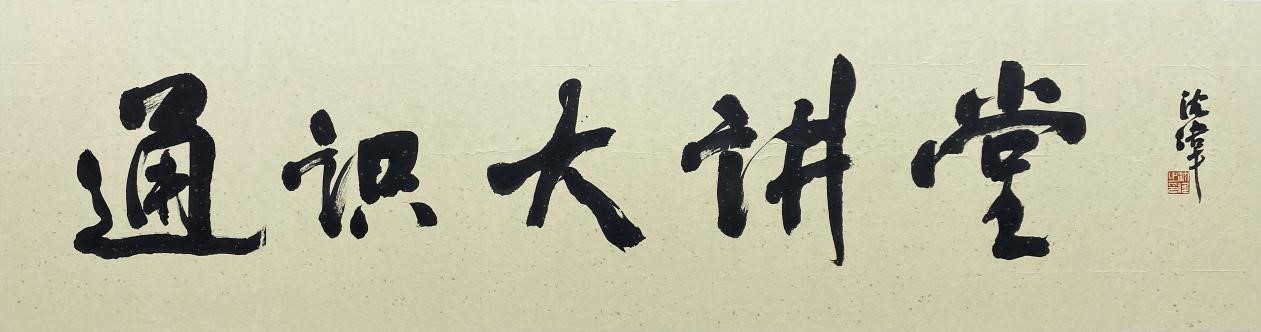 通识大讲堂
沈伟